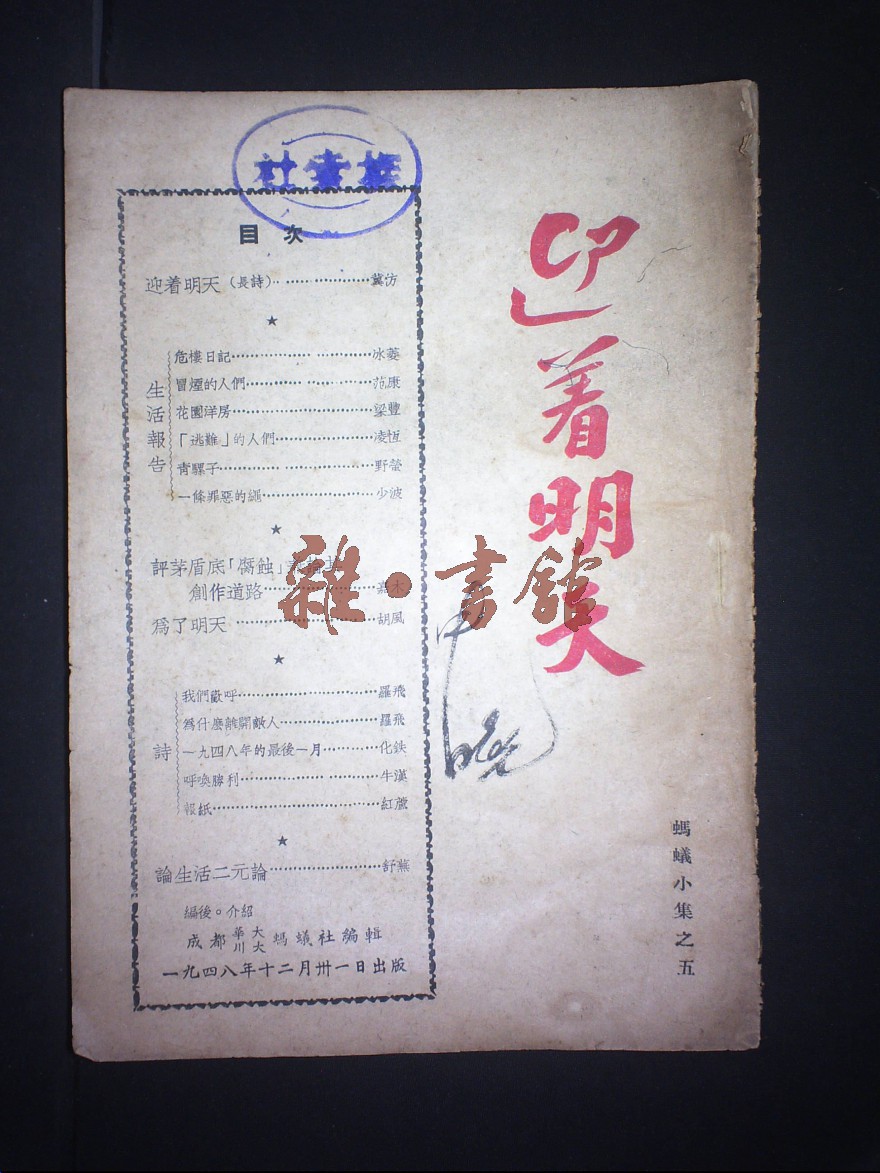 目次
迎着明天(長詩)……………冀汸
★
生活報告
危樓日記……………冰菱
冒煙的人們……………范康
花園洋房……………梁豐
「逃難」的人們……………凌恆
青騾子……………野螢
一條罪惡的繩……………少波
★
評茅盾底「腐蝕」
創作道路……………嘉木
爲了明天……………胡風
★
詩
我們歡呼……………羅飛
爲什麼離開敵人……………羅飛
一九四八年的最後一月……………化鉄
呼喚勝利……………牛漢
報紙……………紅蘆
★
論生活二元論……………舒蕪
編後。介紹
成都華大川大螞蟻社編輯
一九四八年十二月卅一日出版
迎着明天
螞蟻小集之五
雜·書館